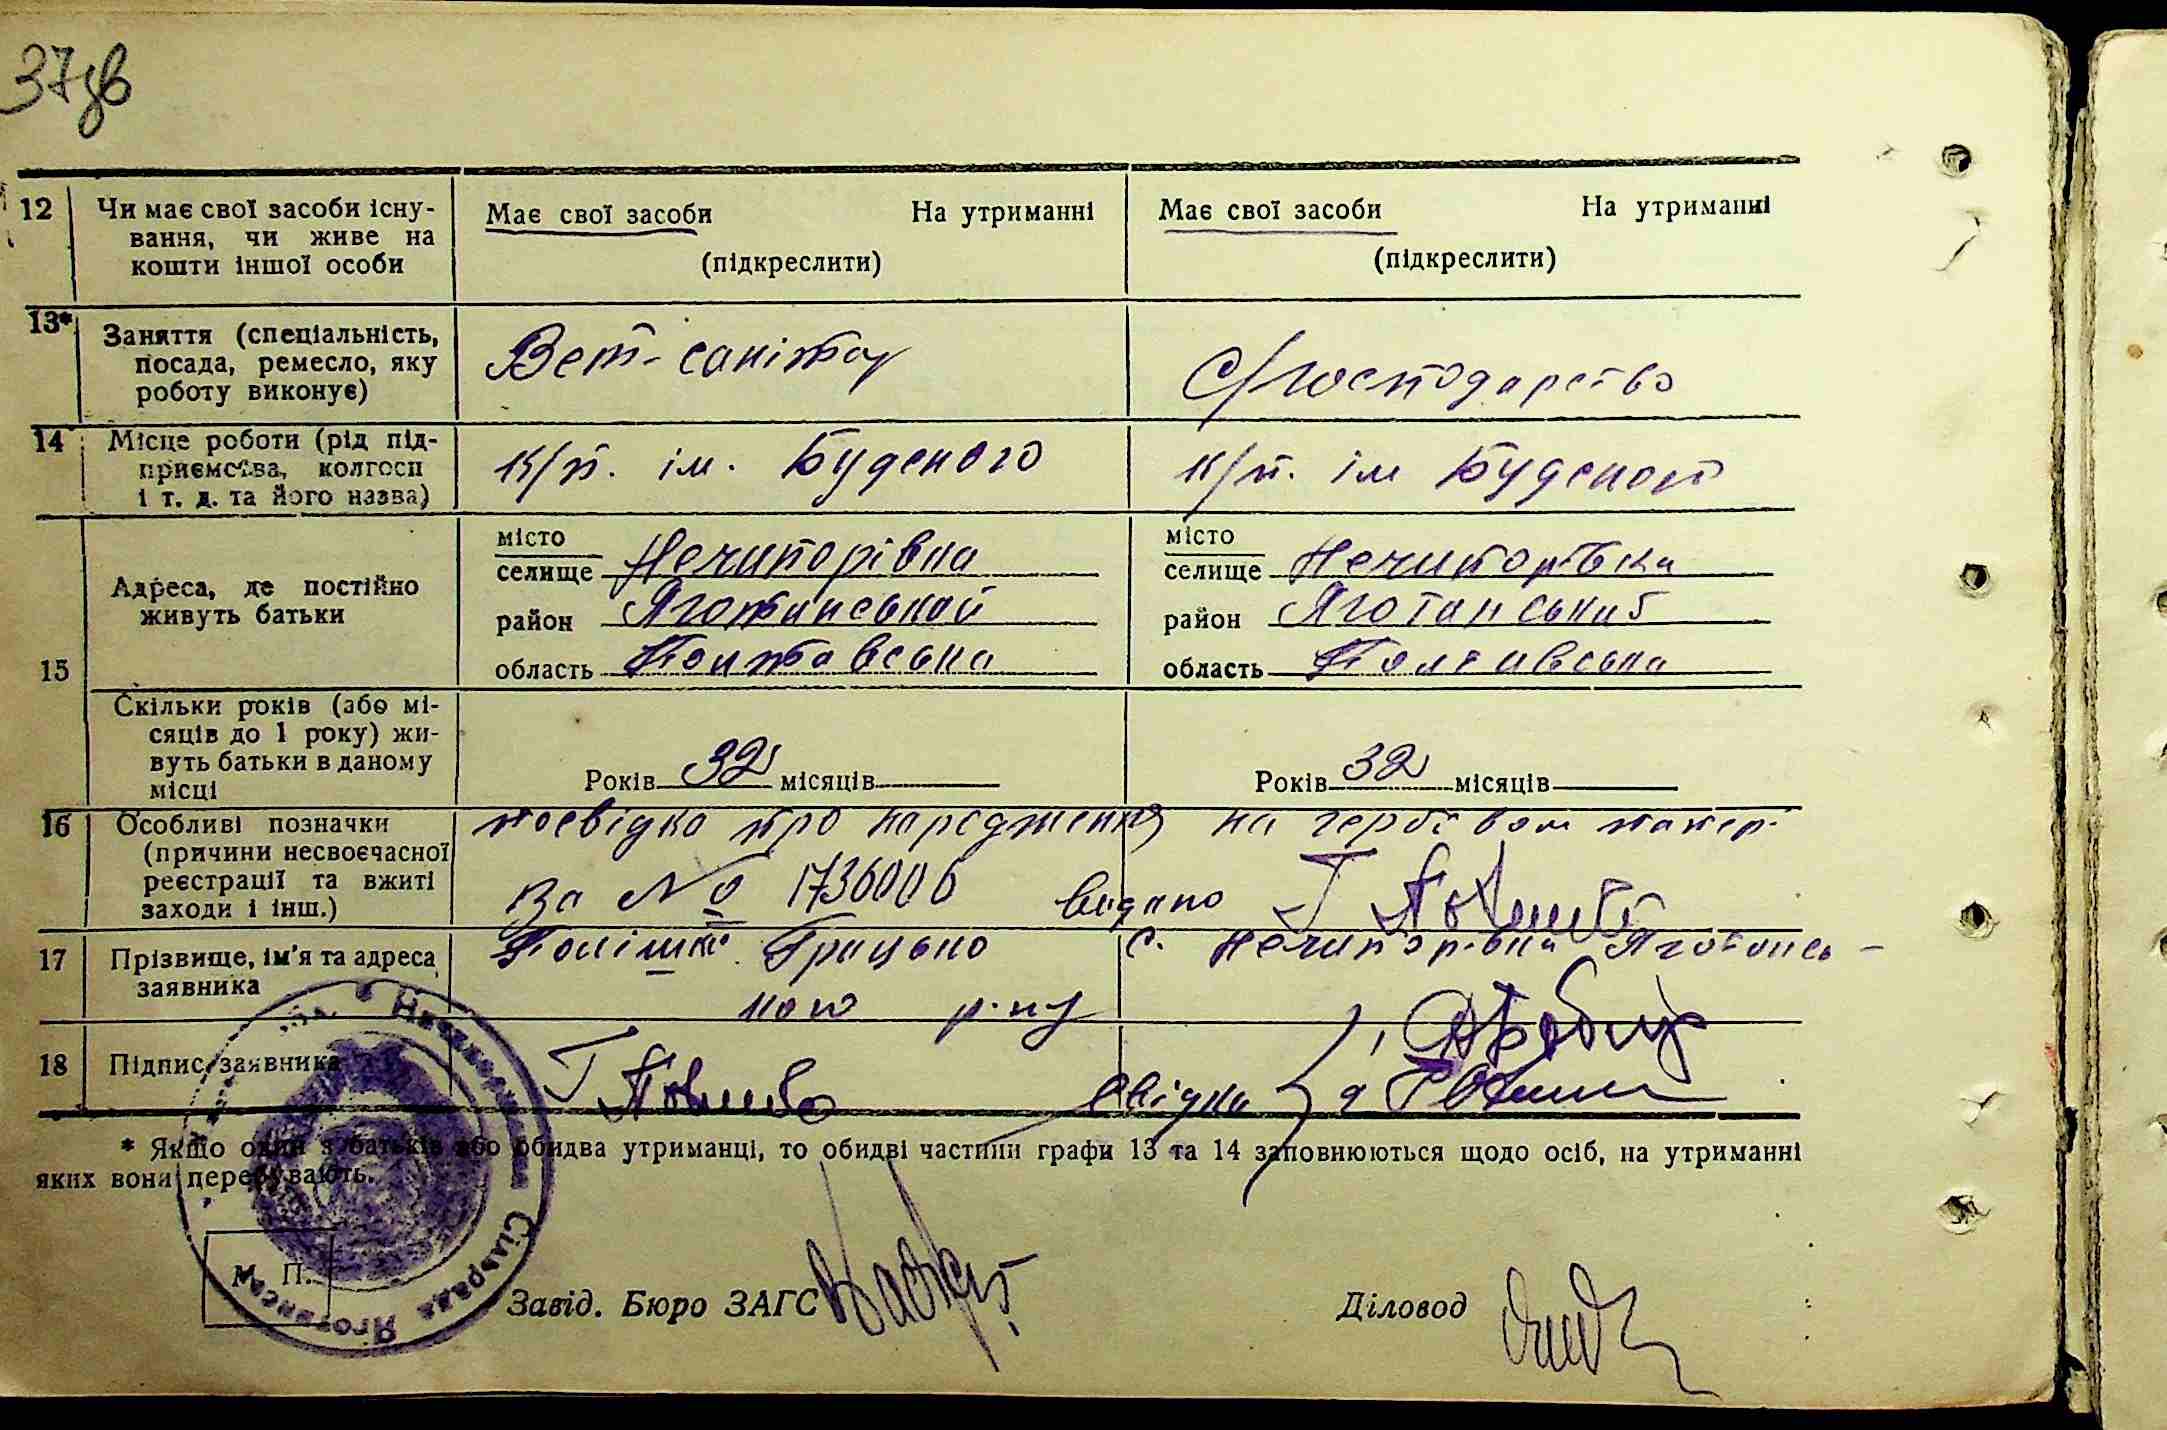 37зв
12 Чи має свої засоби існу-
вання, чи живе на
кошти іншої особи
Має свої засоби На утриманні
(підкреслити)
Має свої засоби На утриманні
(підкреслити)
13* Заняття (спеціальність,
посада, ремесло, яку
роботу виконує)
Вет-санітар
С/господарство
14 Місце роботи (рід під-
приємства, колгосп
і т. д. та його назва)
К/п. ім. Буденого
К/п. ім Буденого
15 Адреса, де постійно
живуть батьки
місто
селище Нечипорівка
район Яготинський
область Полтавська
місто
селище Нечипорівка
район Яготинський
область Полтавська
Скільки років (або мі-
сяців до 1 року) жи-
вуть батьки в даному
місці
Років 32 місяців
Років 32 місяців
16 Особливі позначки
(причини несвоєчасної
реєстрації та вжиті
заходи і інш.)
посвідка про народження на гербовом папері
За № 1736006 видано
17 Прізвище, ім'я та адреса
заявника
Грицько с. Нечипорівка Яготинсь-
кого р-ну
18 Підпис заявника
свідки
* Якщо один з батьків або обидва утриманці, то обидві частини графи 13 та 14 заповнюються щодо осіб, на утриманні
яких вони перебувають.
М. П.
Завід. Бюро ЗАГС
Діловод
Сільрада